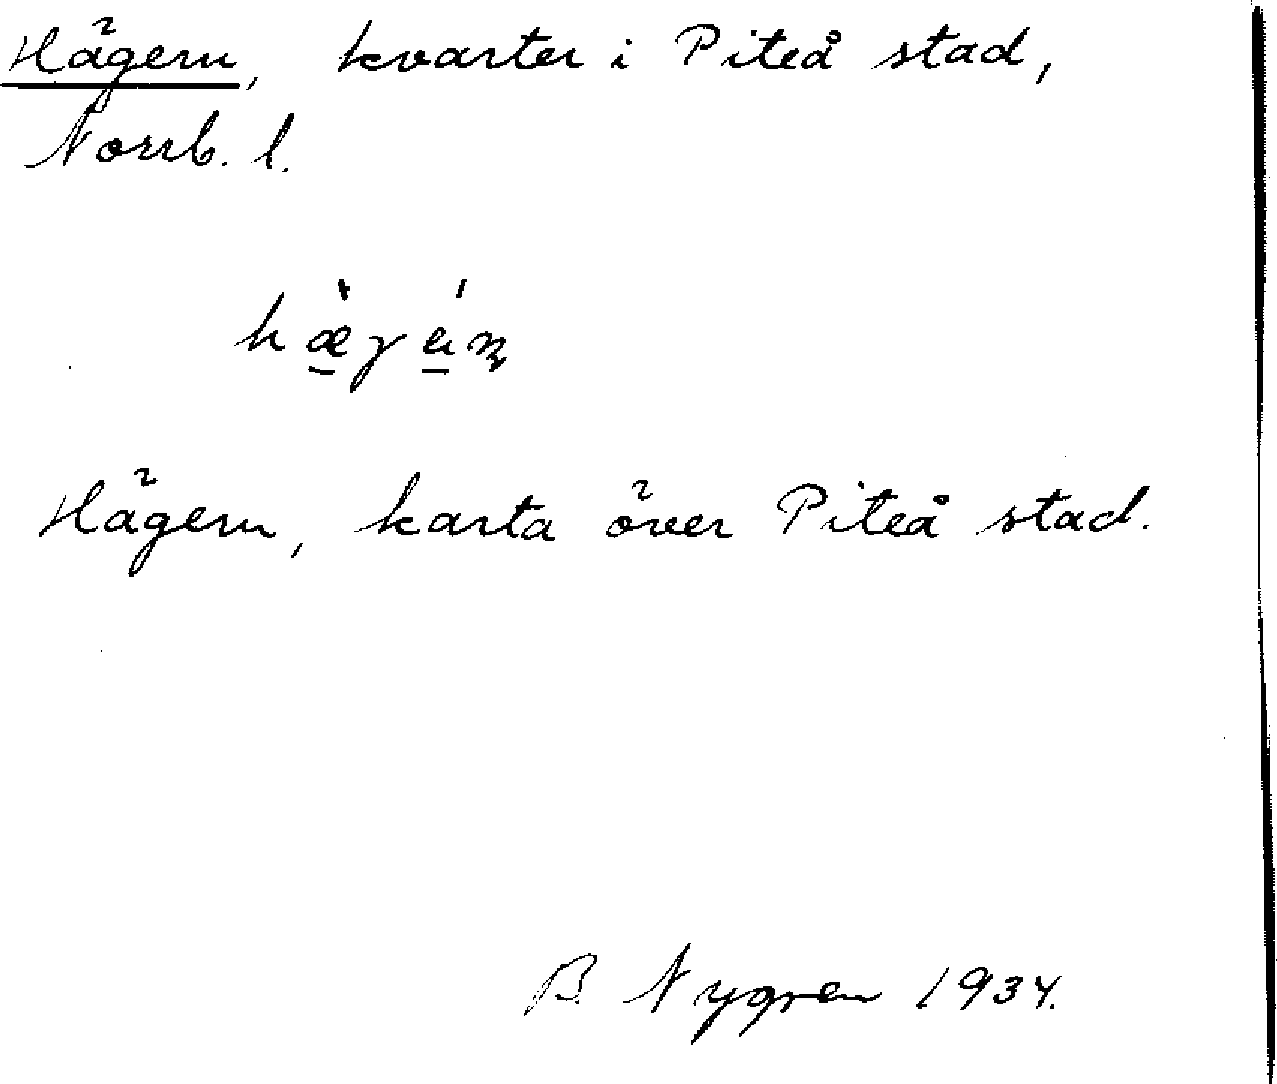 Hägern, kvarter i Piteå stad,
Norrb. l.
Hägern, karta över Piteå stad.
B. Nygren 1934.